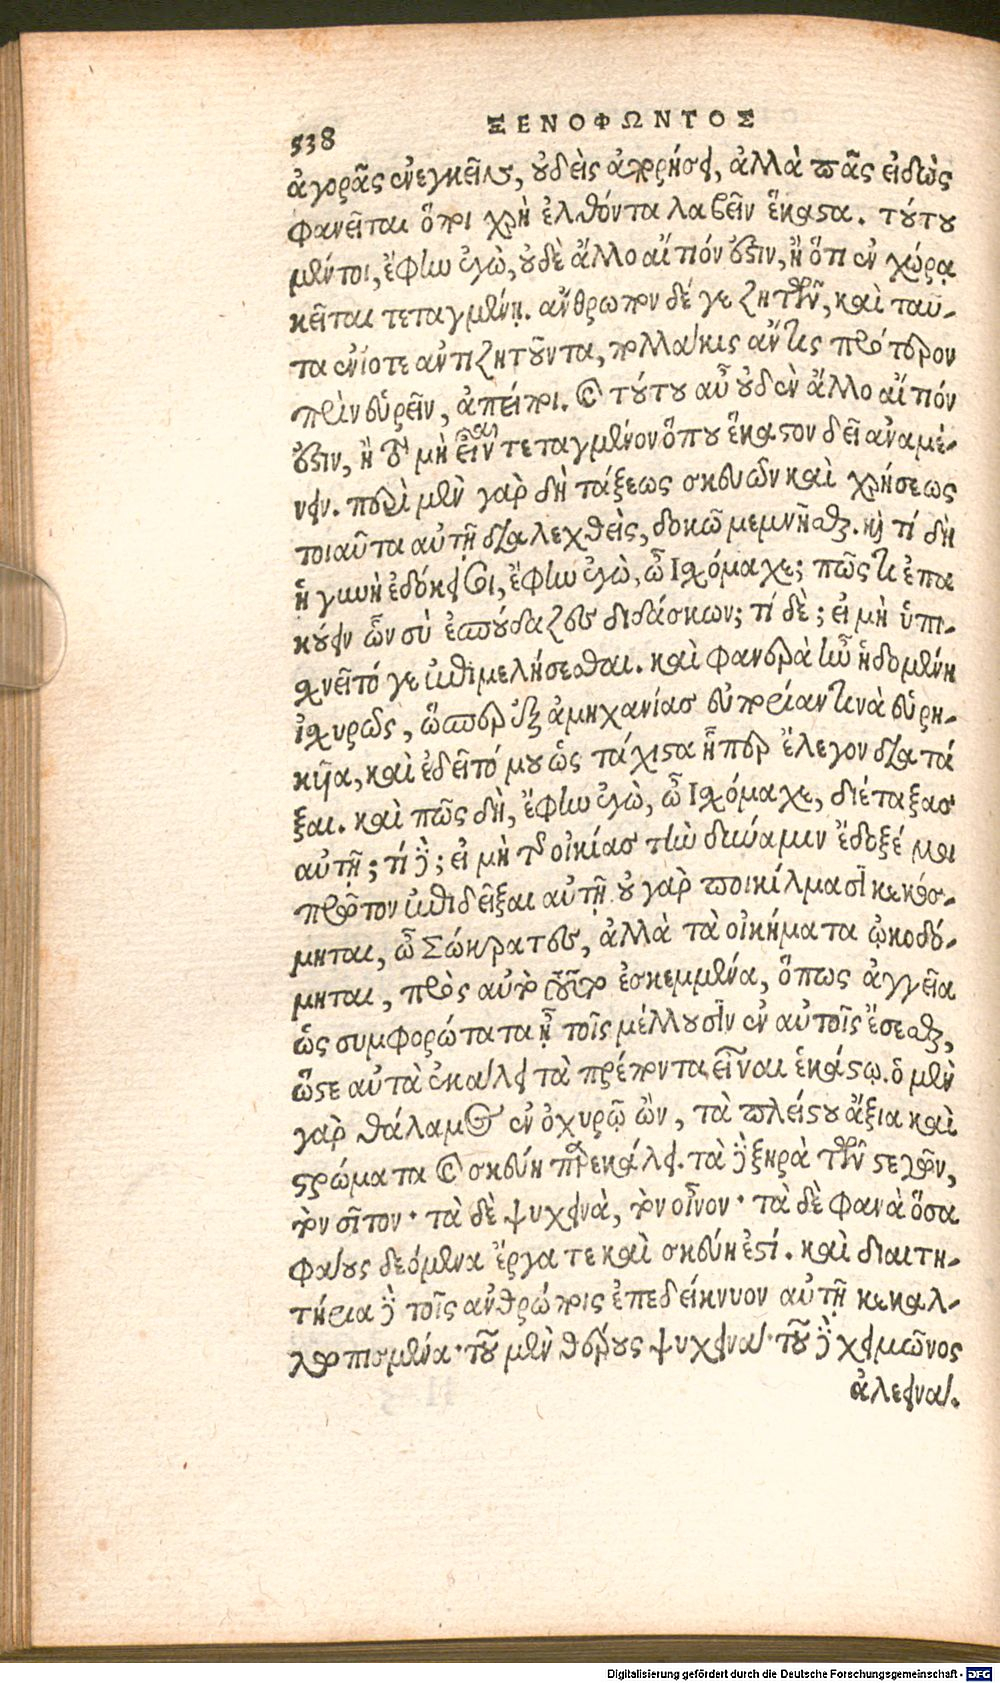 538
ΞΕΝΟΦΩΝΤΟΣ
ἀγορᾶς ἐνεγκεῖν σοι, οὐδεὶς ἀπορήσει, ἀλλὰ πᾶς εἰδὼς
φανεῖται ὅποι χρὴ ἐλθόντα λαβεῖν ἕκαστα. τούτου
μέντοι, ἔφην ἐγὼ, οὐδὲ ἄλλο αἴτιόν ἐστιν, ἢ ὅτι ἐν χώρᾳ
κεῖται τεταγμένῃ. ἄνθρωπον δέ γε ζητῶν, καὶ ταῦ-
τα ἐνίοτε ἀντιζητοῦντα, πολλάκις ἄν τις πρότερον
πρὶν εὑρεῖν, ἀπείποι. καὶ τούτου αὖ οὐδὲν ἄλλο αἴτιόν
ἐστιν, ἢ τὸ μὴ εἶναι τεταγμένον ὅπου ἕκαστον δεῖ ἀναμέ-
νειν. περὶ μὲν γὰρ δὴ τάξεως σκευῶν καὶ χρήσεως
τοιαῦτα αὐτῇ διαλεχθεὶς, δοκῶ μεμνῆσθαι. καὶ τί δὴ
ἡ γυνὴ ἐδόκει σοι, ἔφην ἐγὼ, ὦ Ισχόμαχε; πῶς τι ἐπα
κούειν ὧν σὺ ἐσπούδαζες διδάσκων; τί δὲ; εἰ μὴ ὑπι-
σχνεῖτό γε ἐπιμελήσεσθαι. καὶ φανερὰ ἦν ἡδομένη
ἰσχυρῶς, ὥσπερ ἐξ ἀμηχανίας εὐπορίαν τινὰ εὑρη-
κῆα, καὶ ἐδεῖτό μου ὡς τάχιστα ᾗπερ ἔλεγον διατά
ξαι. καὶ πῶς δὴ, ἔφην ἐγὼ, ὦ Ισχόμαχε, διέταξας
αὐτῇ; τί δὲ; εἰ μὴ τῆς οἰκίας τὴν δύναμιν ἔδοξέ μοι
πρῶτον ἐπιδεῖξαι αὐτῇ. οὐ γὰρ ποικίλμασι κεκόσ-
μηται, ὦ Σώκρατες, ἀλλὰ τὰ οἰκήματα ᾠκοδό-
μηται, πρὸς αὐτὸ τοῦτο ἐσκεμμένα, ὅπως ἀγγεῖα
ὡς συμφορώτατα ᾖ τοῖς μέλλουσιν ἐν αὐτοῖς ἔσεσθαι,
ὥστε αὐτὰ ἐκάλει τὰ πρέποντα εἶναι ἑκάστῳ. ὁ μὲν
γὰρ θάλαμος ἐν ὀχυρῷ ὢν, τὰ πλείστου ἄξια καὶ
στρώματα καὶ σκεύη παρεκάλει. τὰ δὲ ξηρὰ τῶν στεγῶν,
τὸν σῖτον· τὰ δὲ ψυχεινὰ, τὸν οἶνον· τὰ δὲ φανὰ ὅσα
φάους δεόμενα ἔργα τε καὶ σκεύη ἐστί. καὶ διαιτη-
τήρια δὲ τοῖς ἀνθρώποις ἐπεδείκνυον αὐτῇ κεκαλ-
λωπισμένα· τοῦ μὲν θέρους ψυχεινά· τοῦ δὲ χειμῶνος
ἀλεεινά.
Digitalisierung gefördert durch die Deutsche Forschungsgemeinschaft - DFG